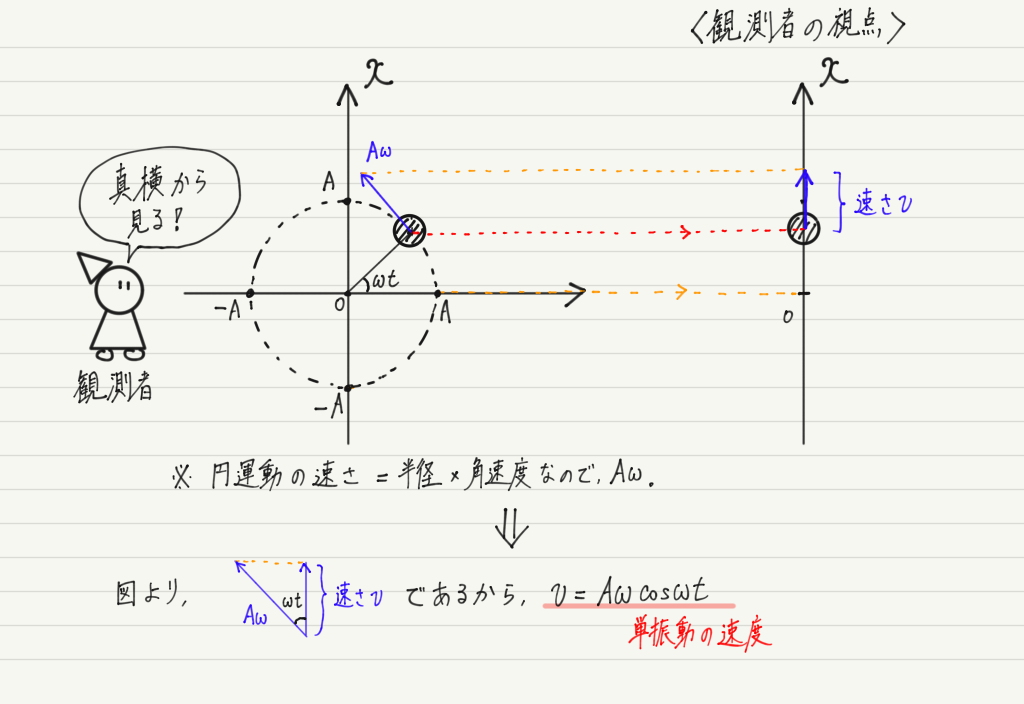 〈観測者の視点〉
x
x
真横から
見る!
Aω
A
速さv
ωt
-A
O
A
O
観測者
-A
※ 円運動の速さ = 半径 × 角速度なので, Aω.
⇓
図より, Aω ωt 速さv であるから, v = Aω cosωt
単振動の速度